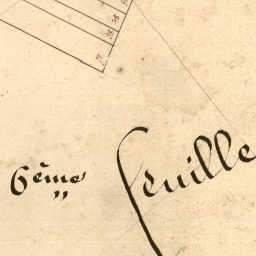 6ème feuille